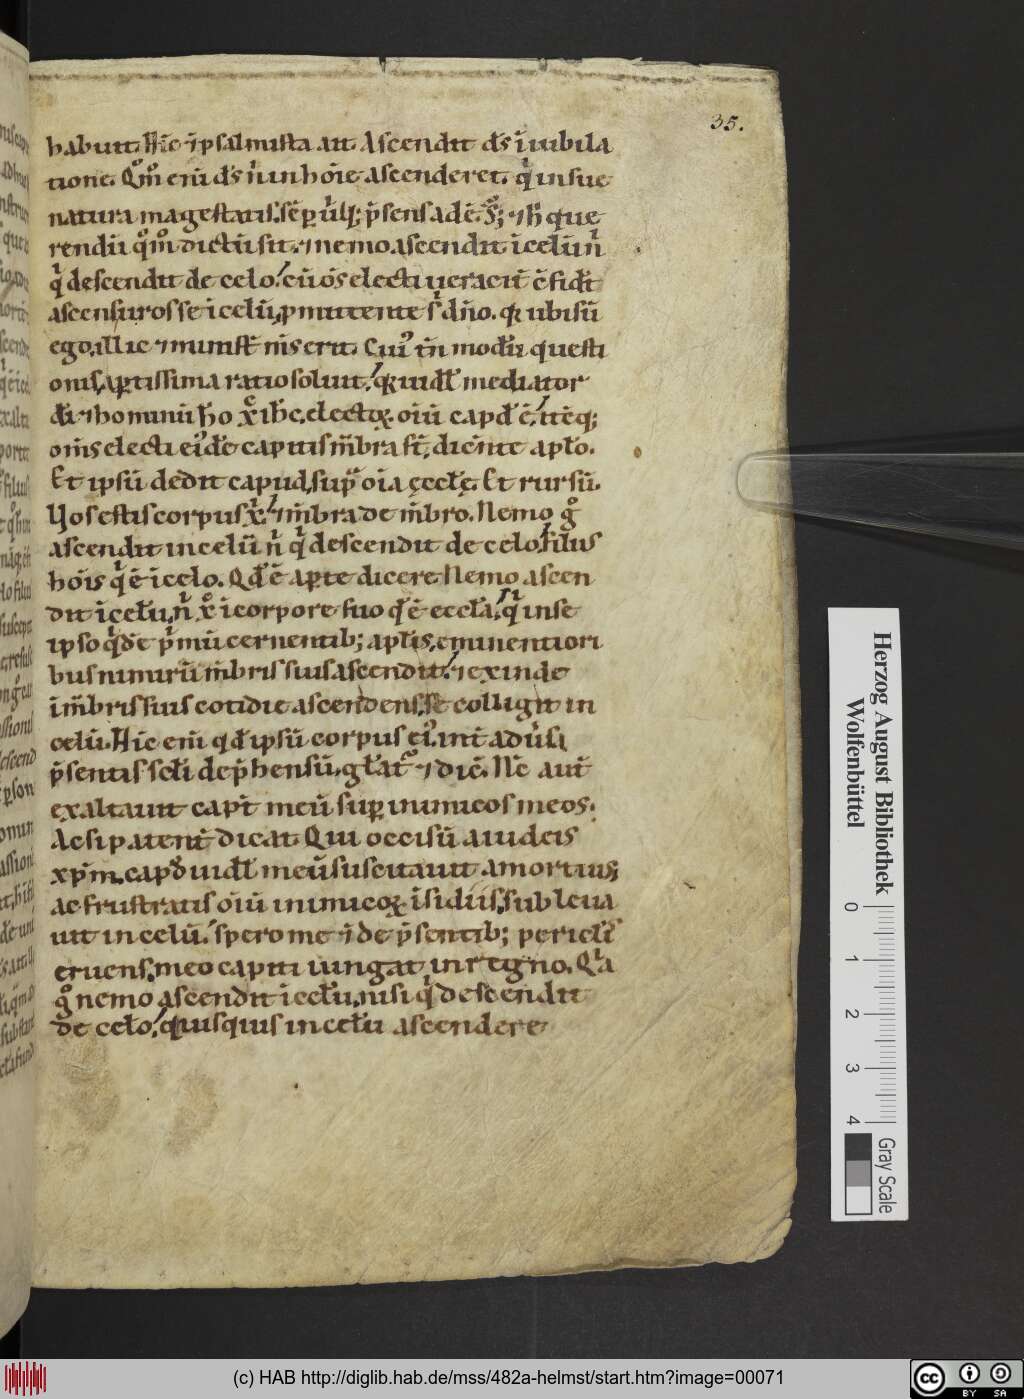 35.
habuit. Hic ipsalmista ait. Ascendit dſ iniubila
tione. Qm̄ eni dſ nin hoīe ascenderet. qi in sue
natura magestatis. sēp ubiq; p̄sens adē. S; ⁊ h̄ que
rendū qm̄ dictū sit. ⁊ nemo ascendit icelū n̄
qi descendit de celo. cū oms electi ueracit̄ cōfidāt
ascensuros se icelū, pmittente s dn̄o. qr ubi sū
ego. illic ⁊ minist̄ ms erit. Cui tn̄ modū questi
onis, aptissima ratio soluit. qr uidl mediator
dī ⁊ hominū ho xc ihc. electoꝝ oīū capd ē. itēq;
omīs electi eide capitis m̄bra st̄. dicente aplo.
Et ipsū dedit capud, sup oīa ęcclę. Et rursū.
Uos estis corpus xi. ⁊ m̄bra de m̄bro. Nemo g
ascendit in celū n̄ qi descendit de celo. filius
hoīs qi ē icelo. Qd ē apte dicere Nemo ascen
dit icelū, n̄ xc icorpore suo qd ē eccla. qi in se
ipso qide p̄mū cernentib; aplis, eminentiori
bus nimirū m̄bris suis ascendit. ⁊ exinde
im̄bris suis cotidie ascendens, se colligit in
celū. Hic eni qd ipsū corpus ei. int adūsi
p̄sentis scli dep̄hensū. glat ⁊ dic. Nc aut
exaltauit capt meū sup inimicos meos.
Ac si patent dicat. Qui occisū a iudeis
xpm. capd uidl meū suscitauit a mortuis;
ac frustratis oīū inimicoꝝ isidiis, subleua
uit in celū. spero me ⁊ de p̄sentib; periclis
eruens, meo capiti iungat in regno. Qia
g nemo ascendit icelū, nisi qi descendit
de celo. quisquis in celū ascendere
Herzog August Bibliothek
Wolfenbüttel
0 1 2 3 4
Gray Scale
(c) HAB http://diglib.hab.de/mss/482a-helmst/start.htm?image=00071
cc BY SA